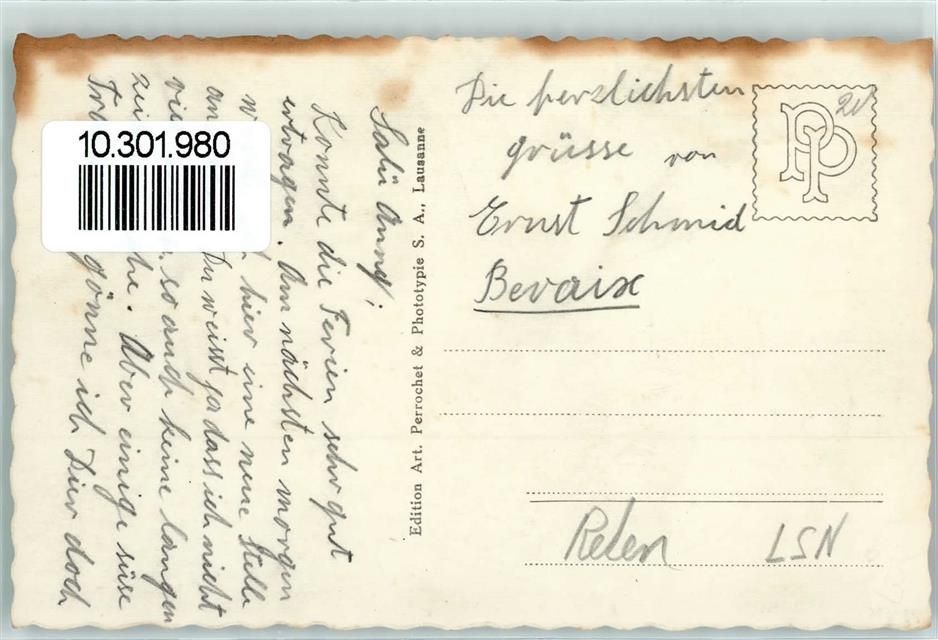 Salü Anny,
Konnte die Ferien sehr gut
ertragen. Am nächsten morgen
hier eine neue Stelle
an Du weisst ja dass ich nicht
so auch keine langen
Aber einige süsse
gönne ich Dir doch
Edition Art. Perrochet & Phototypie S. A., Lausanne
Die herzlichsten
grüsse von
Ernst Schmid
Bevaix
PP
20
Reben LSN
10.301.980